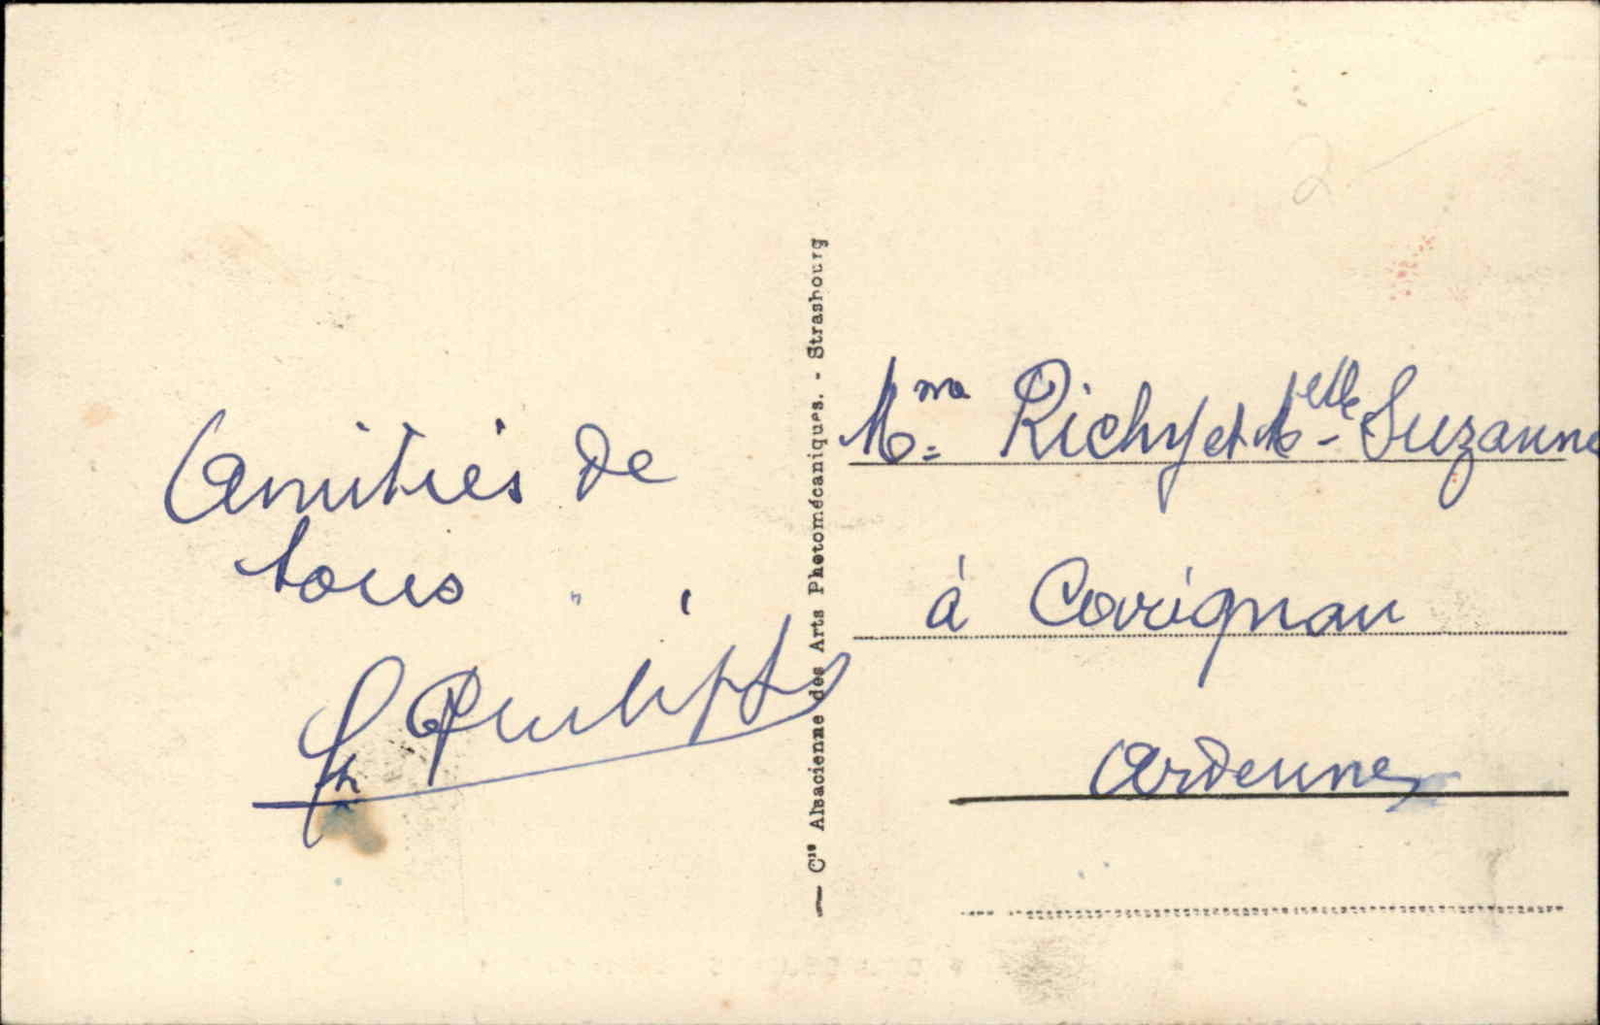 Amitiés de
tous
Philipps
— Cie Alsacienne des Arts Photomécaniques. - Strasbourg
Mme Richy et Melle Suzanne
à Carignan
Ardennes